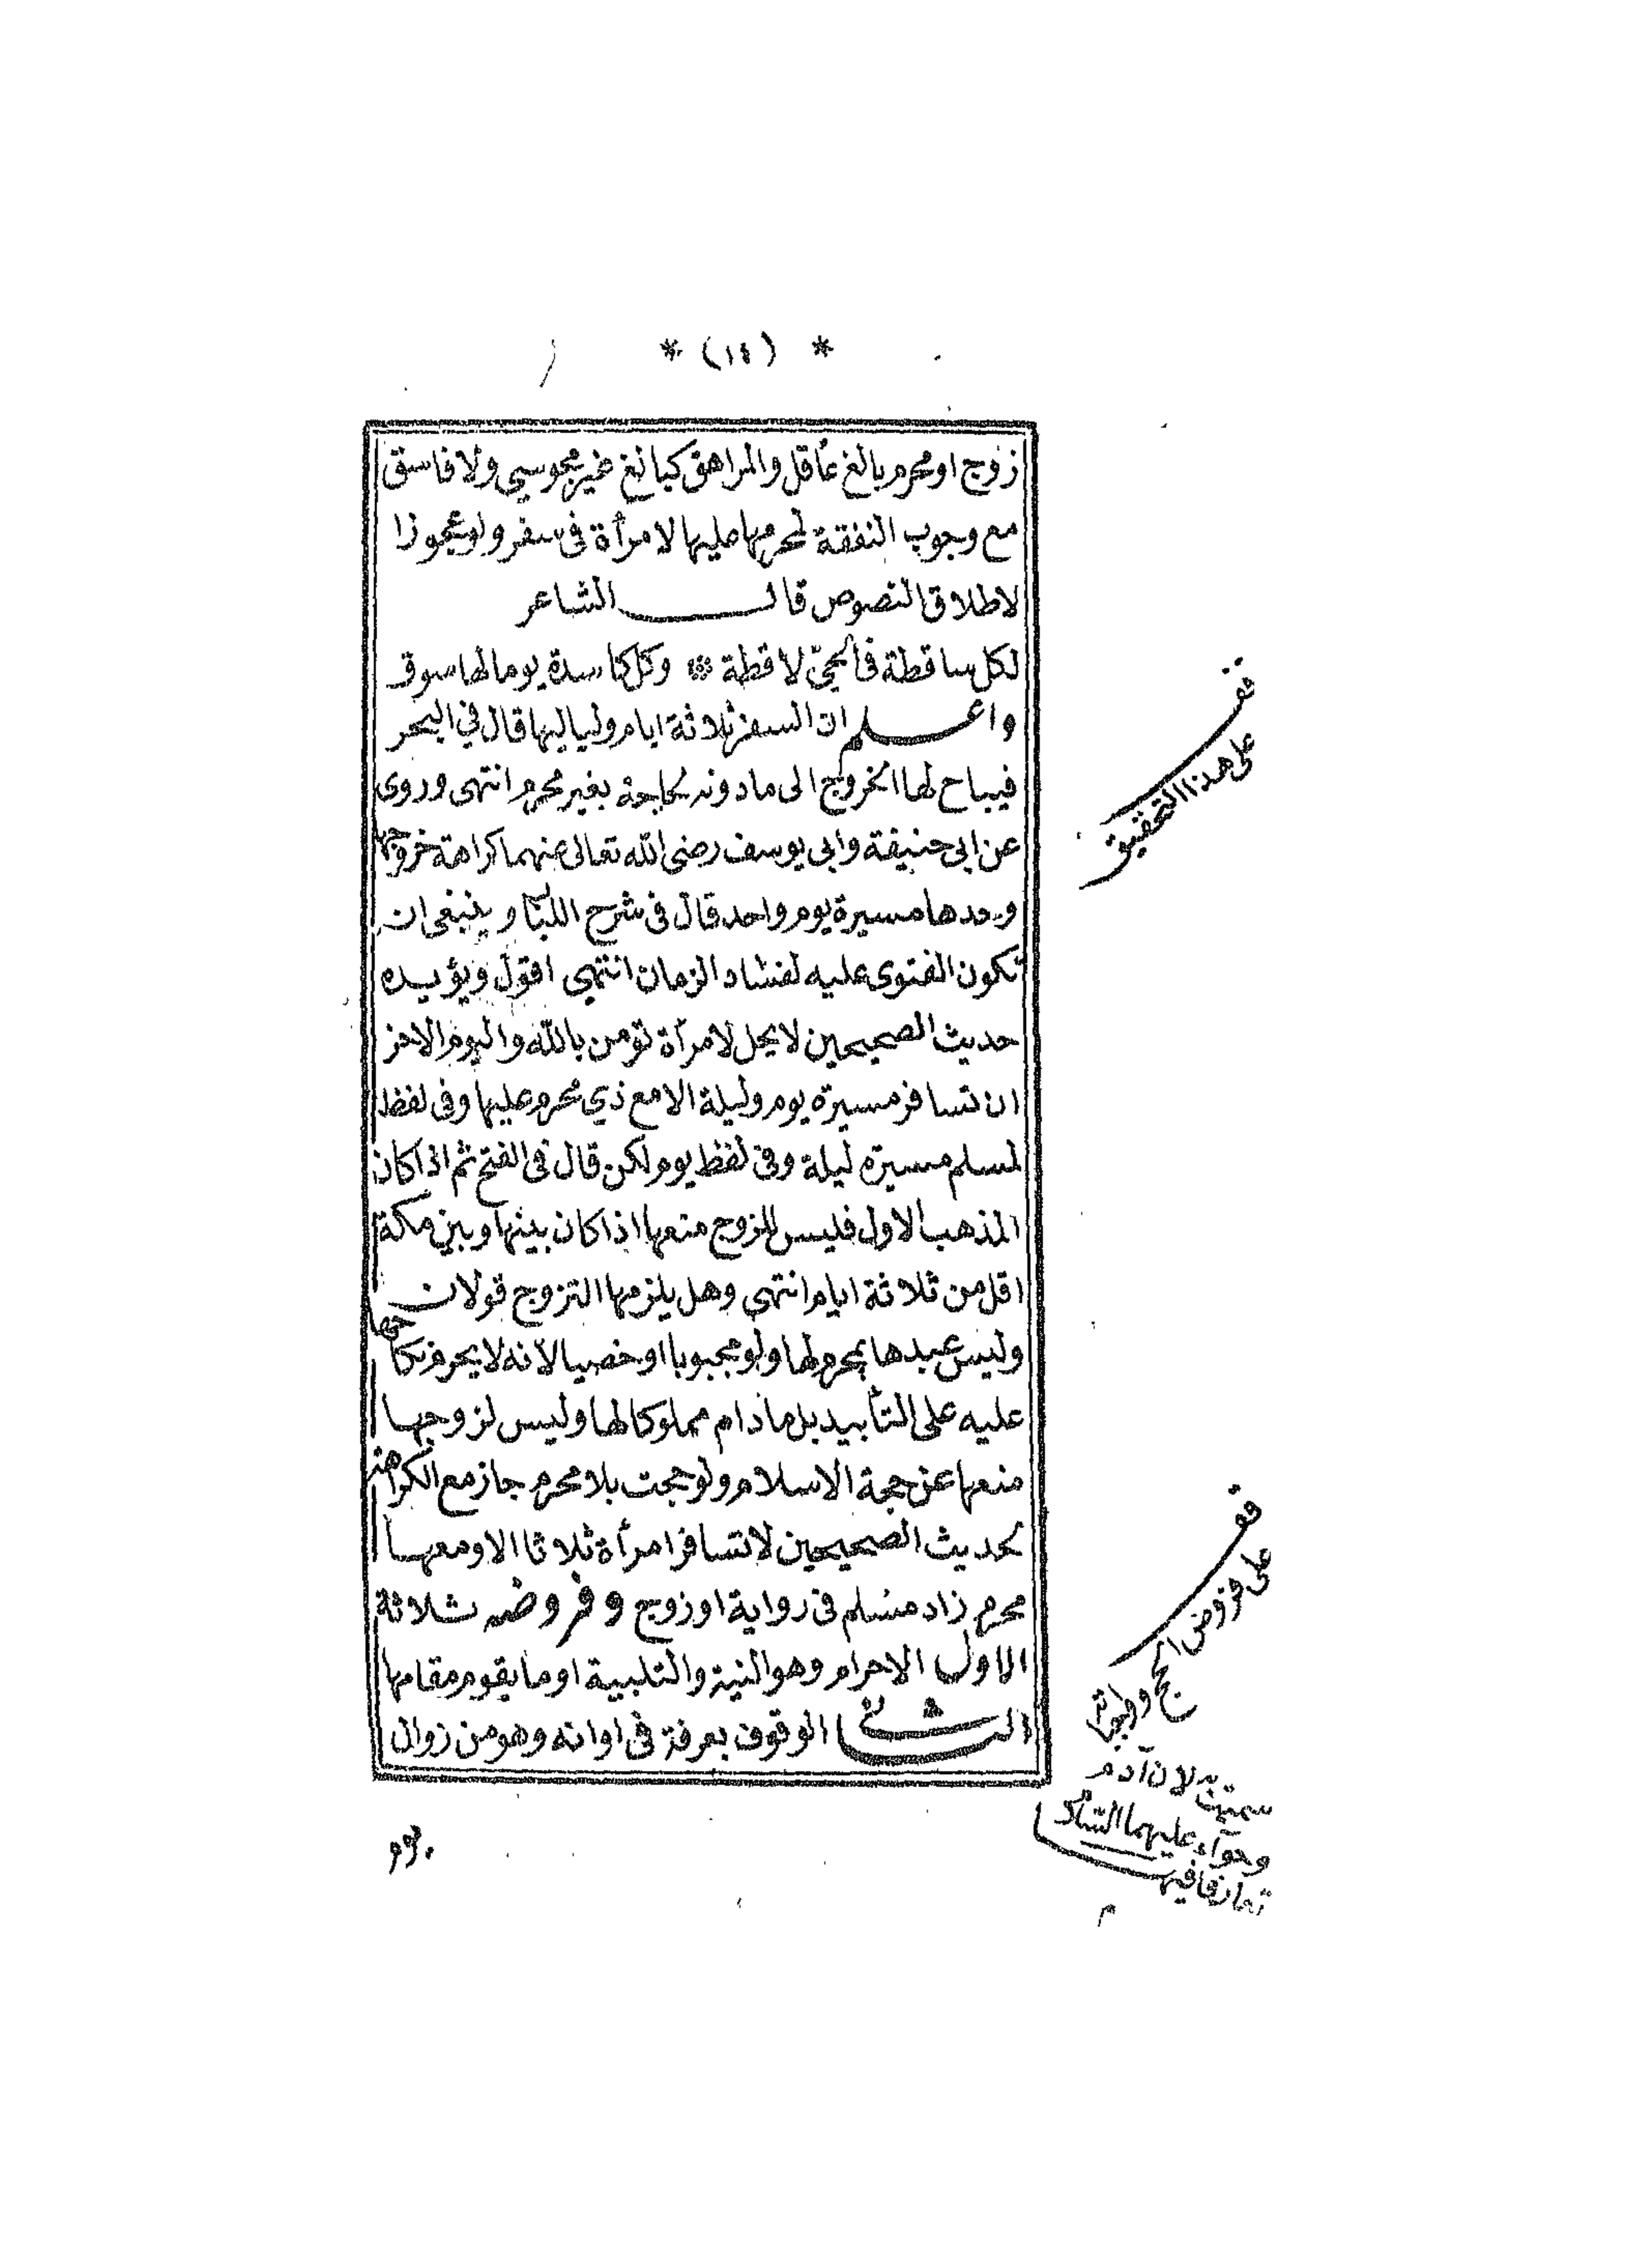 * (١٤) *
زوج او محرم بالغ عاقل والمراهق كبالغ غير مجوسي ولا فاسق
مع وجوب النفقة لمحرمها عليها لامرأة فى سفر ولو عجوزا
لاطلاق النصوص قال الشاعر
لكل ساقطة فى الحي لاقطة * وكل كاسدة يوما لها سوق
واعلم ان السفر ثلاثة ايام ولياليها قال في البحر
فيباح لها الخروج الى ما دونه لحاجة بغير محرم انتهى وروى
عن ابى حنيفة وابى يوسف رضى الله تعالى عنهما كراهة خروجها
وحدها مسيرة يوم واحد قال فى شرح اللباب وينبغى ان
تكون الفتوى عليه لفساد الزمان انتهى اقول ويؤيده
حديث الصحيحين لا يحل لامرأة تؤمن بالله واليوم الاخر
ان تسافر مسيرة يوم وليلة الا مع ذي محرم عليها وفى لفظ
لمسلم مسيرة ليلة وفى لفظ يوم لكن قال فى الفتح ثم اذا كان
المذهب الاول فليس للزوج منعها اذا كان بينها وبين مكة
اقل من ثلاثة ايام انتهى وهل يلزمها التزوج قولان
وليس عبدها بمحرم لها ولو مجبوبا او خصيا لانه لا يحرم نكاحها
عليه على التأبيد بل ما دام مملوكا لها وليس لزوجها
منعها عن حجة الاسلام ولو حجت بلا محرم جاز مع الكراهة
لحديث الصحيحين لا تسافر امرأة ثلاثا الا ومعها
محرم زاد مسلم فى رواية او زوج وفروضه ثلاثة
الاول الاحرام وهو النية والتلبية او ما يقوم مقامها
الثانى الوقوف بعرفة فى اوانه وهو من زوال
قف
على هذا التحقيق
قف
على فروض
الحج وواجباته
سميت به لان آدم
وحوآء عليهما السلام
تعارفا فيها
م